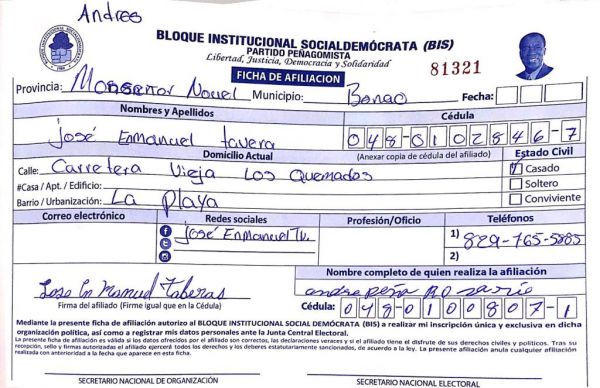 Andres
BLOQUE INSTITUCIONAL SOCIALDEMÓCRATA (BIS)
PARTIDO PEÑAGOMISTA
Libertad, Justicia, Democracia y Solidaridad
FICHA DE AFILIACION
81321
Provincia: Monseñor Nouel Municipio: Bonao Fecha:
Nombres y Apellidos
Cédula
José Enmanuel tavera
048-0102846-7
Domicilio Actual
(Anexar copia de cédula del afiliado)
Estado Civil
Calle: Carretera Vieja Los Quemados
Casado
#Casa / Apt. / Edificio:
Soltero
Barrio / Urbanización: La Playa
Conviviente
Correo electrónico
Redes sociales
Profesión/Oficio
Teléfonos
José EnManuel Tv.
1) 829-765-5885
2)
Nombre completo de quien realiza la afiliación
Jose En Manuel Taberas
andre peña Rosario
Firma del afiliado (Firme igual que en la Cédula)
Cédula: 048-0100807-1
Mediante la presente ficha de afiliación autorizo al BLOQUE INSTITUCIONAL SOCIAL DEMÓCRATA (BIS) a realizar mi inscripción única y exclusiva en dicha
organización política, así como a registrar mis datos personales ante la Junta Central Electoral.
La presente ficha de afiliación es válida si los datos ofrecidos por el afiliado son correctos, las declaraciones veraces y si el afiliado tiene el disfrute de sus derechos civiles y políticos. Tras su
recepción, sello y firmas autorizadas el afiliado ejercerá todos los derechos y los deberes estatutariamente sancionados, de acuerdo a la ley. La presente afiliación anula cualquier afiliación
realizada con anterioridad a la fecha que aparece en esta ficha.
SECRETARIO NACIONAL DE ORGANIZACIÓN
SECRETARIO NACIONAL ELECTORAL